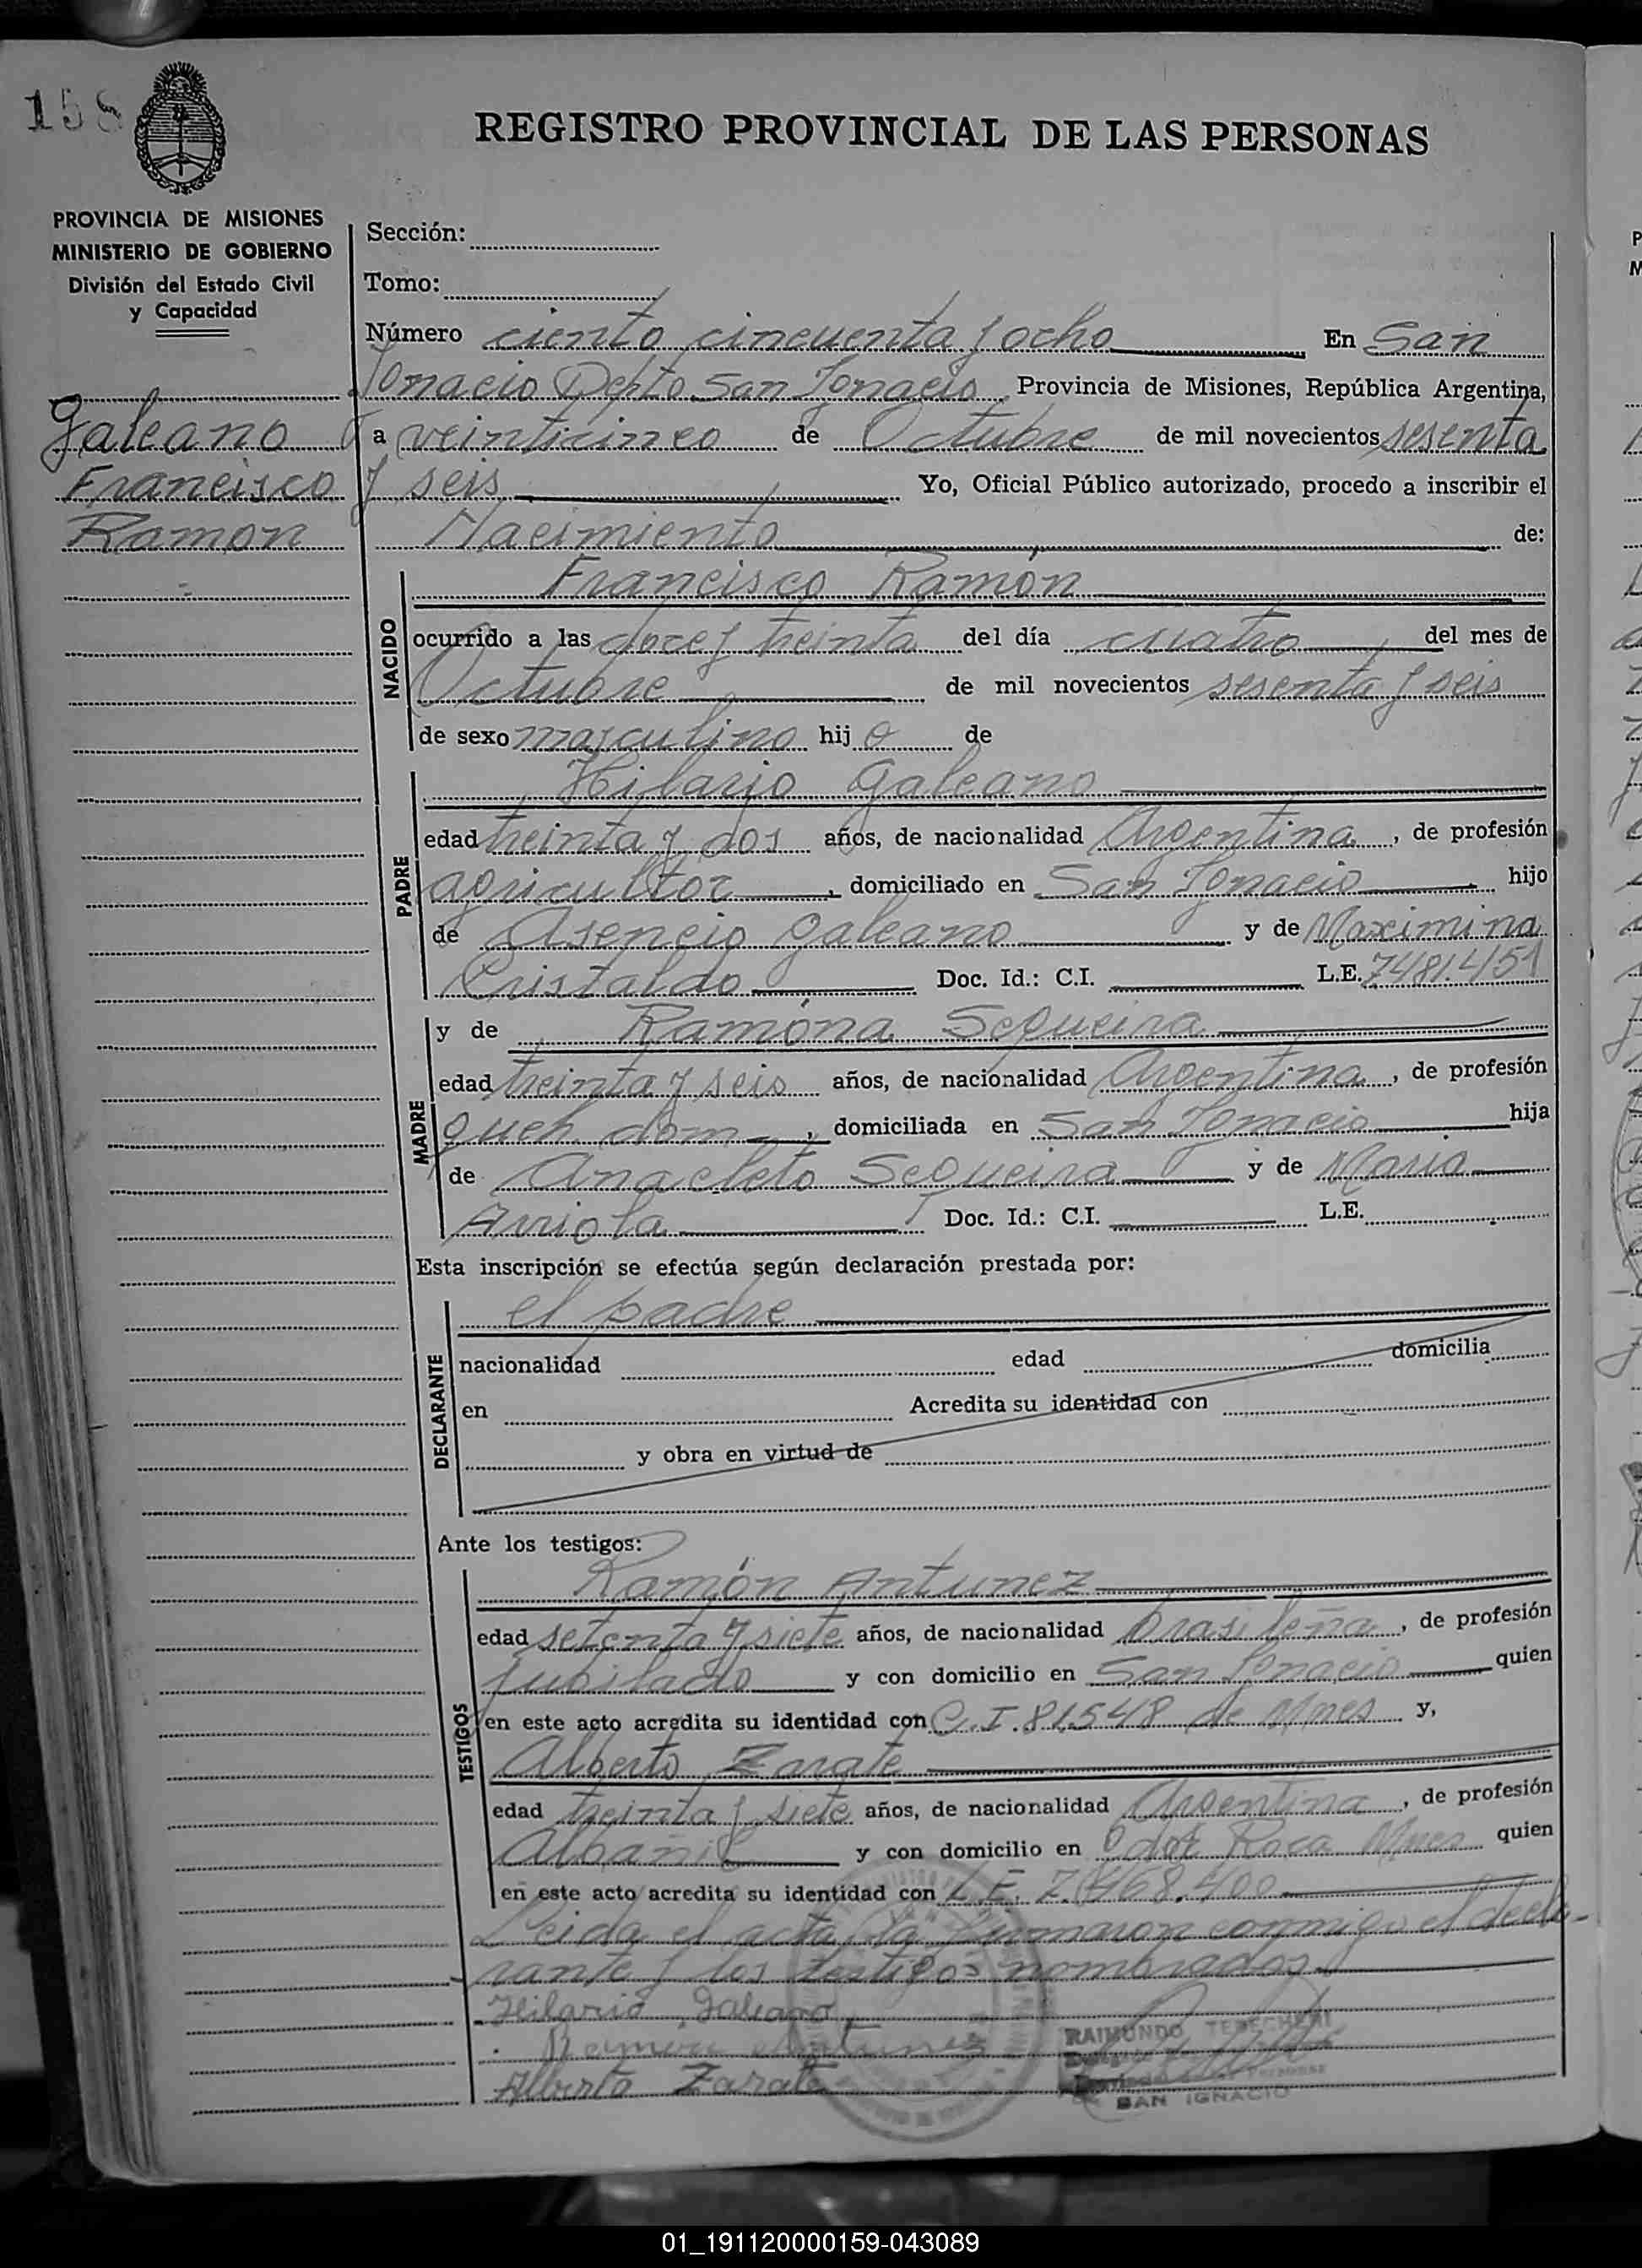 158
REGISTRO PROVINCIAL DE LAS PERSONAS
PROVINCIA DE MISIONES
MINISTERIO DE GOBIERNO
División del Estado Civil
y Capacidad
Galeano
Francisco
Ramon
Sección:
Tomo:
Número ciento cincuenta y ocho En San
Ignacio Depto San Ignacio Provincia de Misiones, República Argentina,
a veinticinco de Octubre de mil novecientos sesenta
y seis Yo, Oficial Público autorizado, procedo a inscribir el
Nacimiento de:
NACIDO
Francisco Ramón
ocurrido a las doce y treinta del día cuatro del mes de
Octubre de mil novecientos sesenta y seis
de sexo masculino hijo de
PADRE
Hilario Galeano
edad treinta y dos años, de nacionalidad Argentina, de profesión
agricultor, domiciliado en San Ignacio hijo
de Asencio Galeano y de Maximina
Cristaldo Doc. Id.: C.I. L.E. 7481.451
MADRE
y de Ramóna Sequeira
edad treinta y seis años, de nacionalidad Argentina, de profesión
queh. dom, domiciliada en San Ignacio hija
de Anacleto Sequeira y de Maria
Arriola Doc. Id.: C.I. L.E.
Esta inscripción se efectúa según declaración prestada por:
DECLARANTE
el padre
nacionalidad edad domicilia
en Acredita su identidad con
y obra en virtud de
Ante los testigos:
TESTIGOS
Ramón Antunez
edad setenta y siete años, de nacionalidad brasileña, de profesión
jubilado y con domicilio en San Ignacio quien
en este acto acredita su identidad con C.I. 81.548 de Mnes y,
Alberto Zarate
edad treinta y siete años, de nacionalidad Argentina, de profesión
Albañil y con domicilio en Roca Mnes quien
en este acto acredita su identidad con L.E. 7.468.400
Leida el acta, la firmaron conmigo el decla-
rante y los testigos nombrados
Hilario Galeano
Ramón Antunez
Alberto Zarate
RAIMUNDO
SAN IGNACIO
01_191120000159-043089